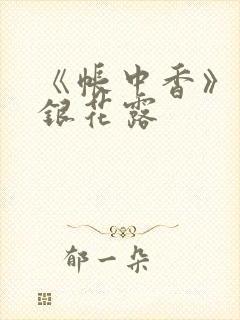 《帐中香》
银花露
郁一朵